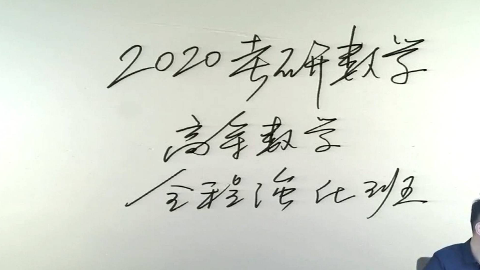 2020考研数学
高等数学
全程强化班